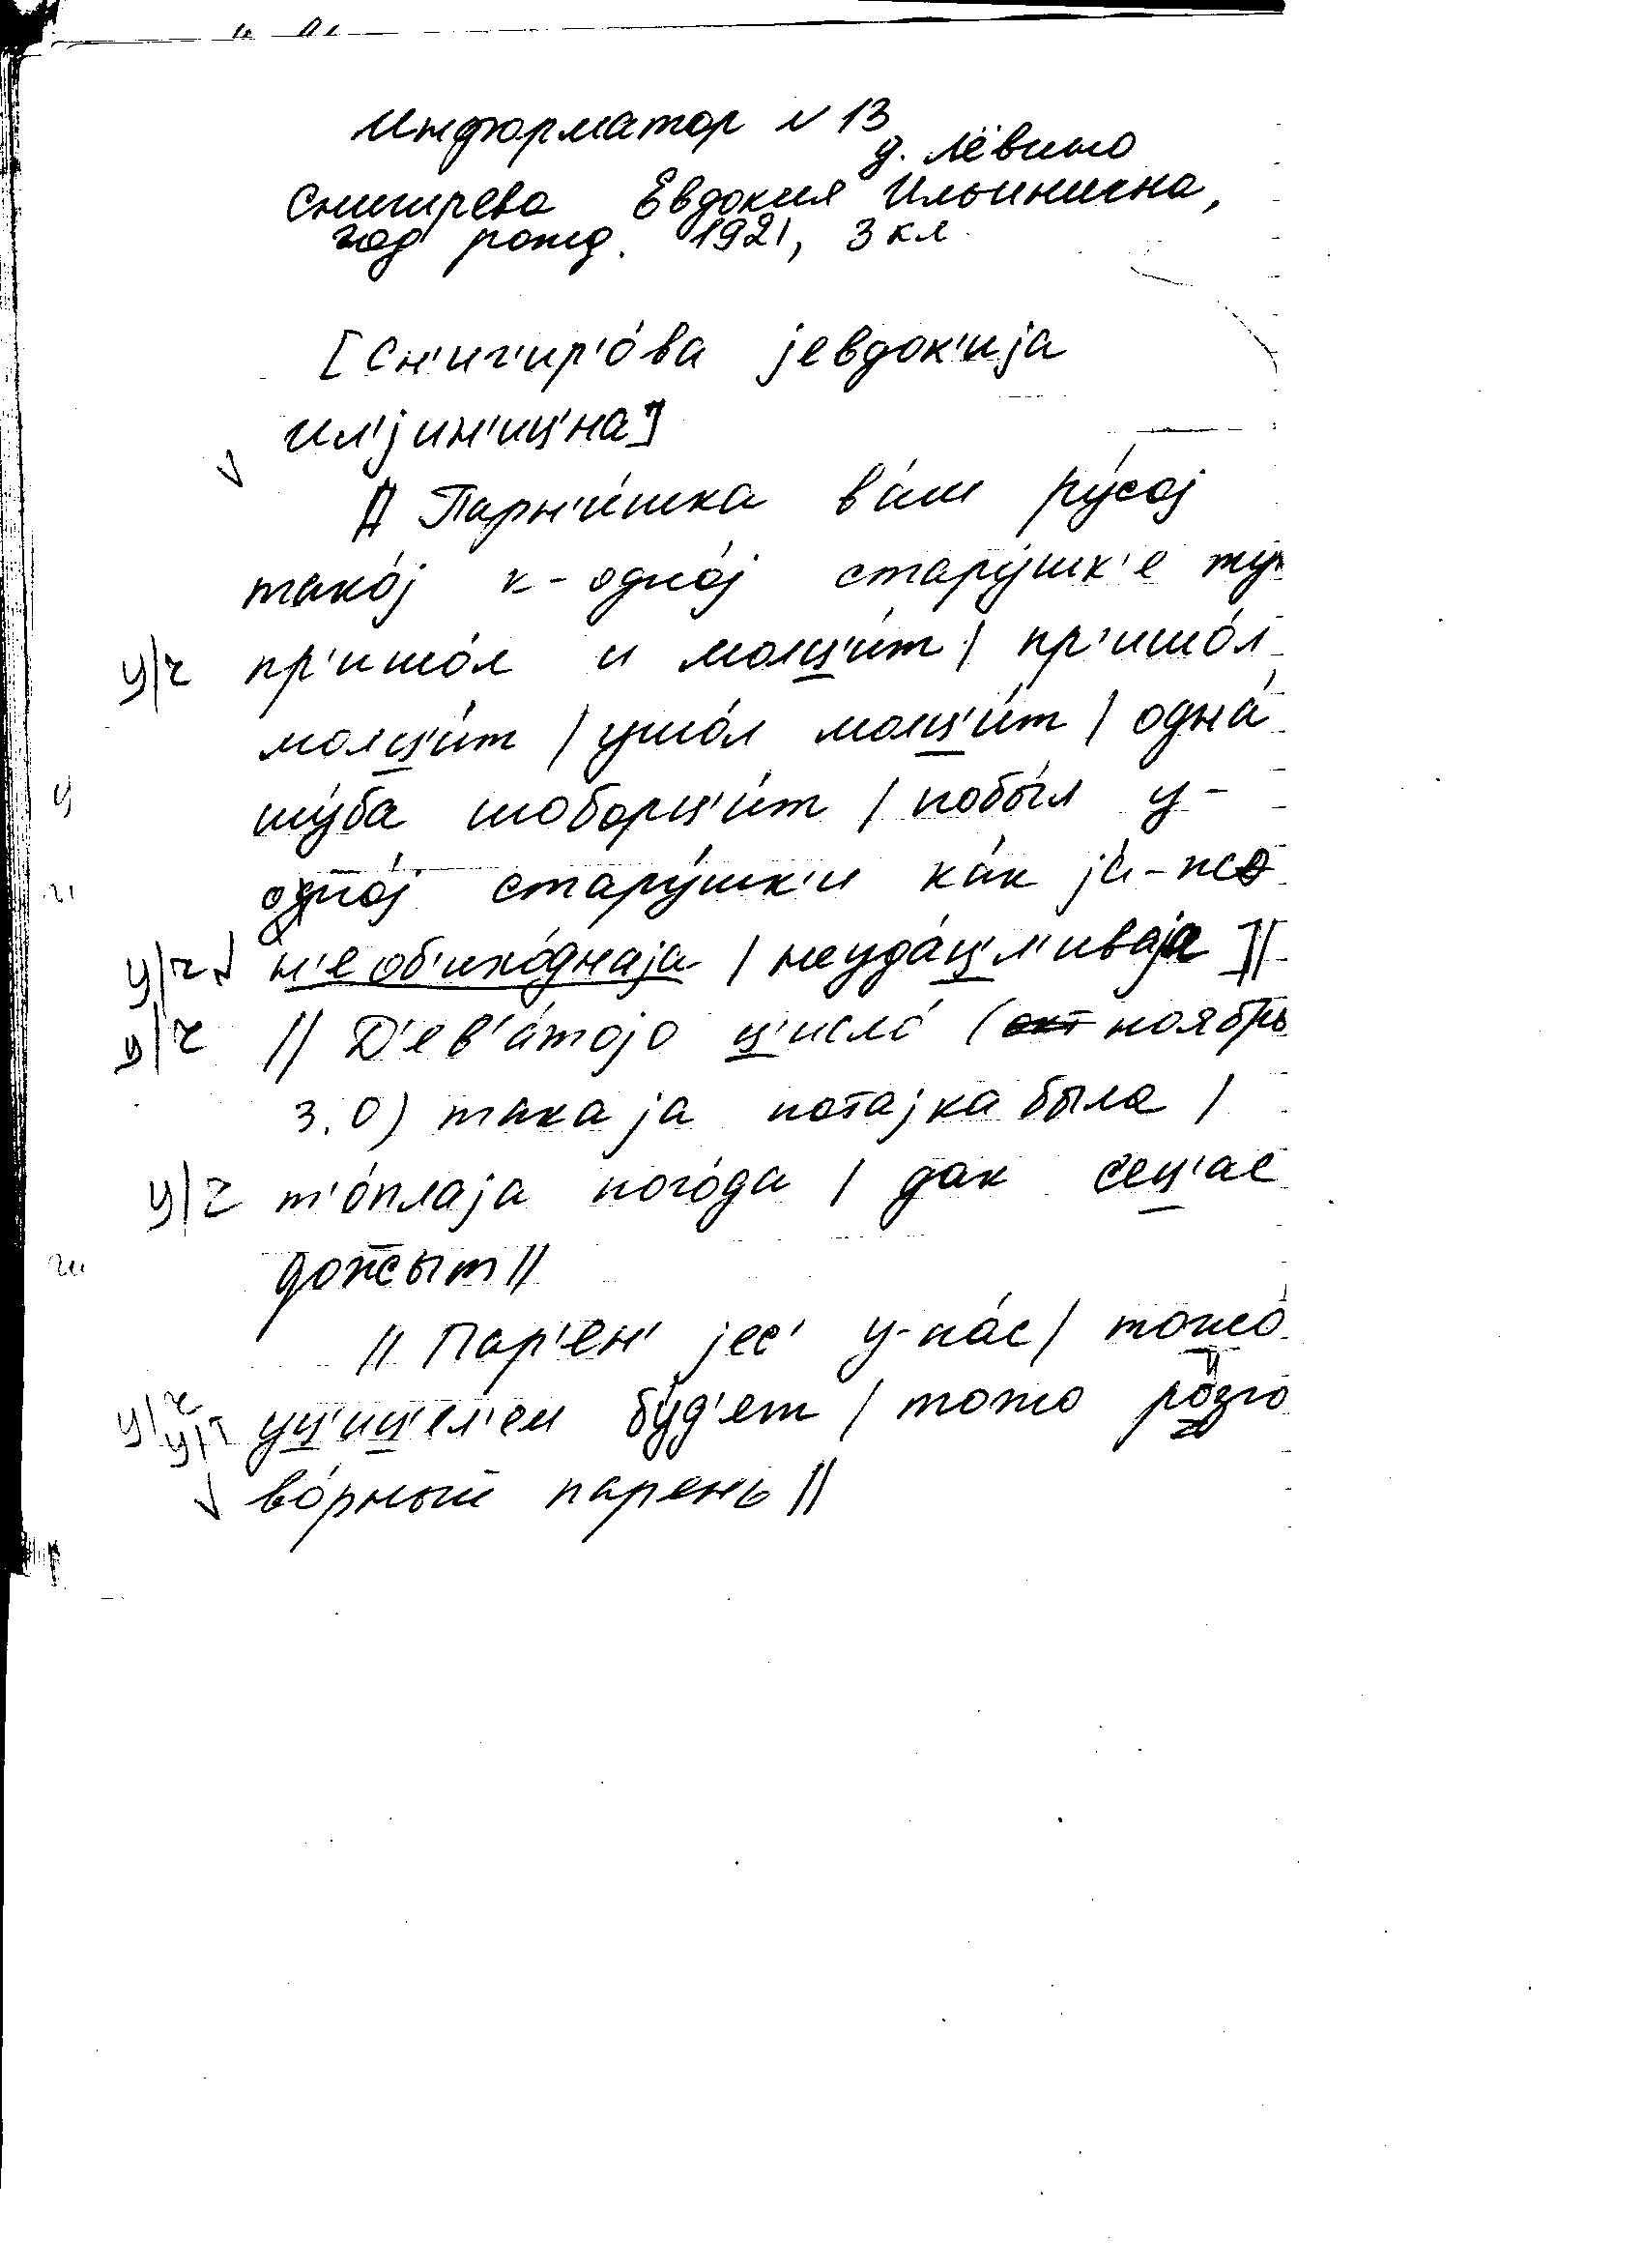 Информатор N 13
д. Лёвино
Снигирева Евдокия Ильинична,
год рожд. 1921, 3 кл.
[Сн'иг'ир'о́ва јевдок'ија
ил'јин'иц'на]
// Парн'и́шка ва́ш ру́сој
тако́ј к-одно́ј стару́шк'е тут
ц/ч пр'ишо́л и молц'и́т / пр'ишо́л
молц'и́т / ушо́л молц'и́т / одна́
шу́ба шоборц'и́т / побы́л у-
одно́ј стару́шк'и ка́к ја́-жо
ц/ч н'еоб'ихо́днаја / неуда́ц'л'иваја ]//
ц/ч // Д'ев'а́тојо ц'исла́ (окт ноябрь
З.О) така ја потајка была /
ц/ч т'о́плаја пого́да / дак сец'ас
дожжыт //
// Пар'ен' јес' у-на́с / тожо́
ц/ч ц/т уц'иц'ел'ем бу́д'ет / тожо розго
во́рный парень //